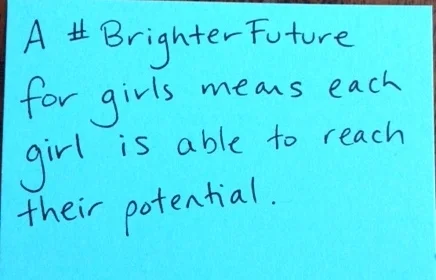 A # Brighter Future
for girls means each
girl is able to reach
their potential.